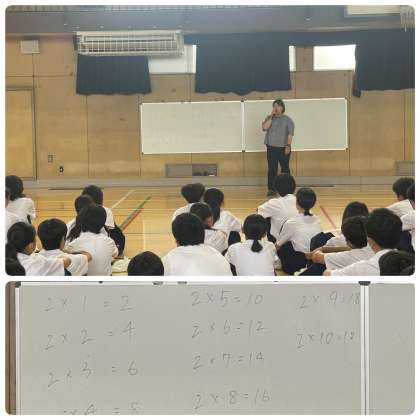 2 × 1 = 2
2 × 2 = 4
2 × 3 = 6
2 × 4 = 8
2 × 5 = 10
2 × 6 = 12
2 × 7 = 14
2 × 8 = 16
2 × 9 = 18
2 × 10 = 12